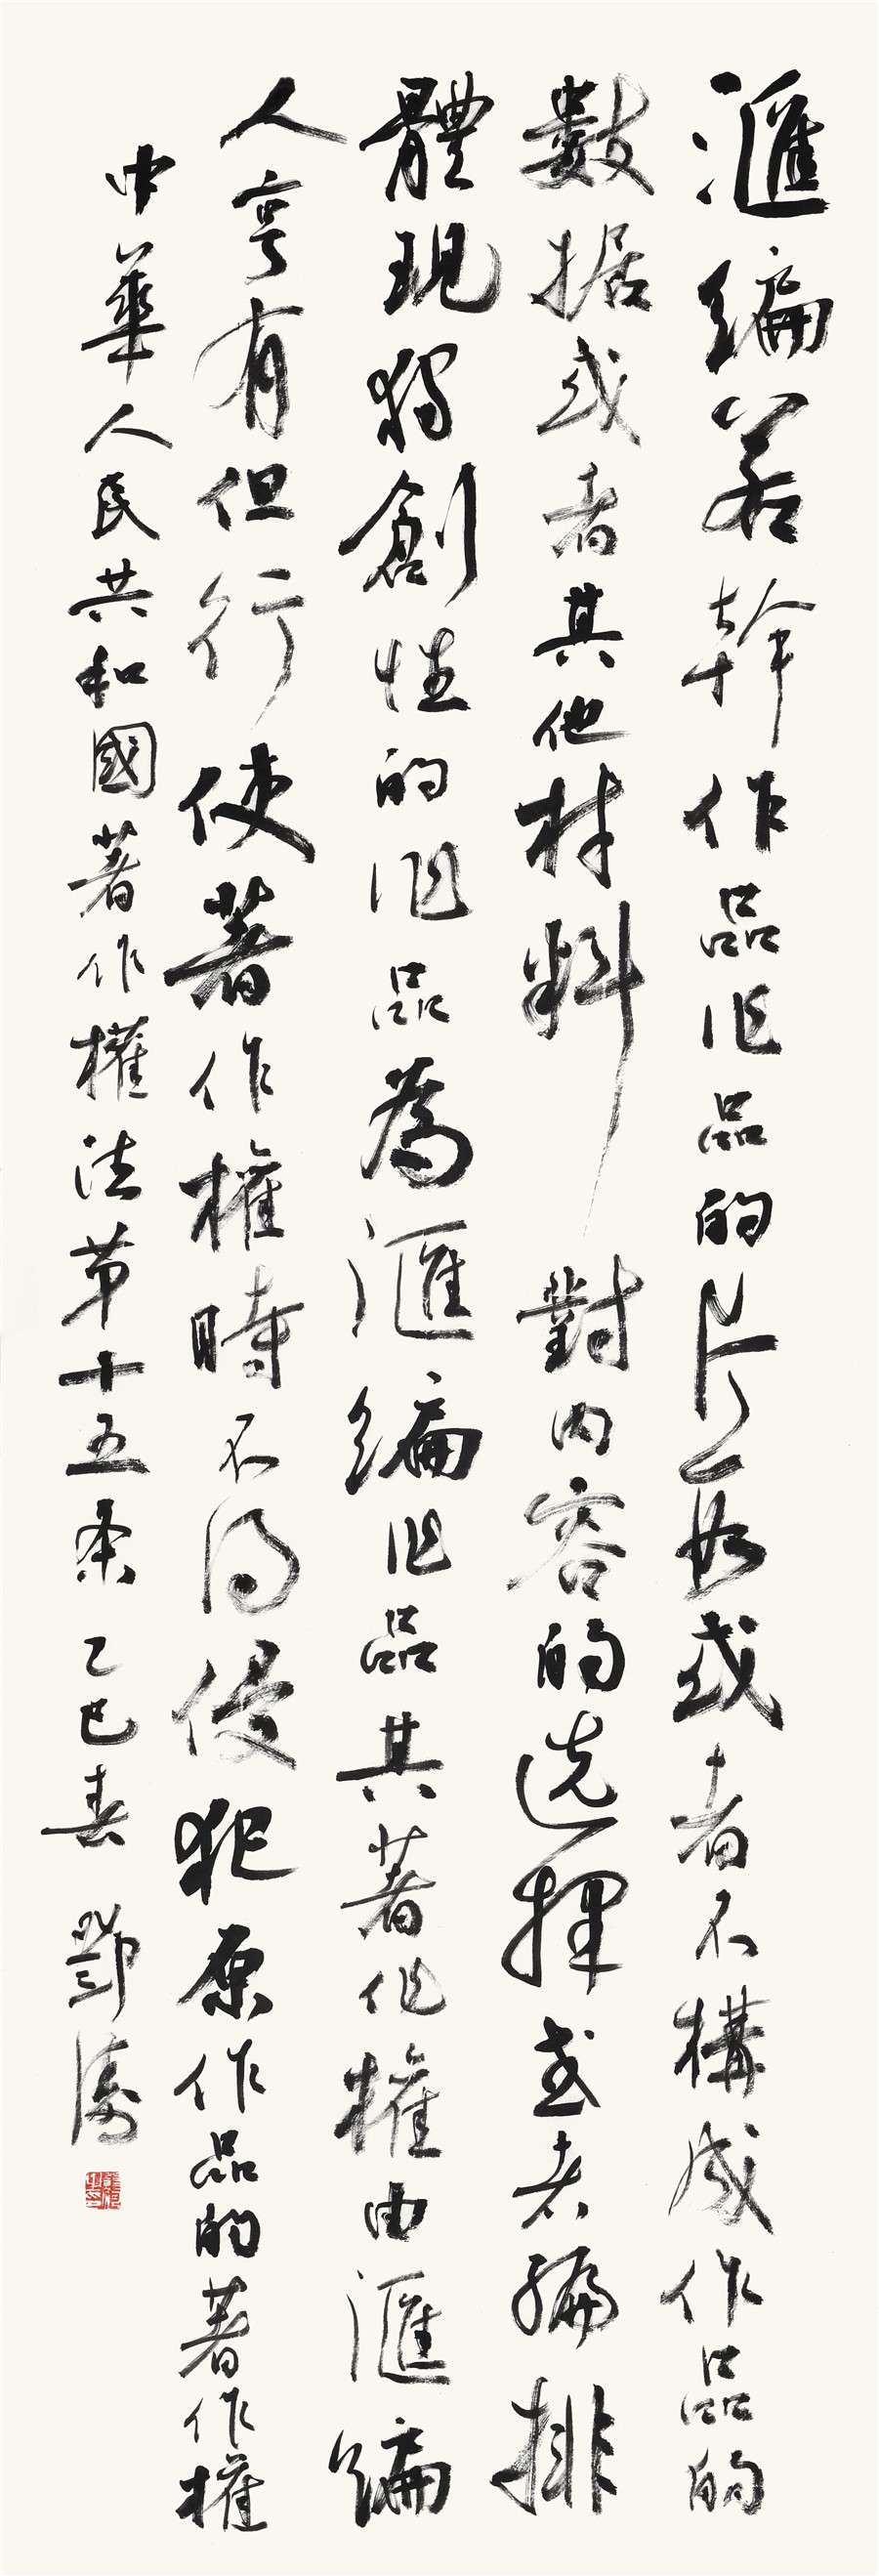 滙編若幹作品作品的片段或者不構成作品的
數据或者其他材料對内容的选擇或者編排
體現獨創性的作品為滙編作品其著作權由滙編
人享有但行使著作權時不得侵犯原作品的著作權
中華人民共和國著作權法第十五条乙巳春鄧濤